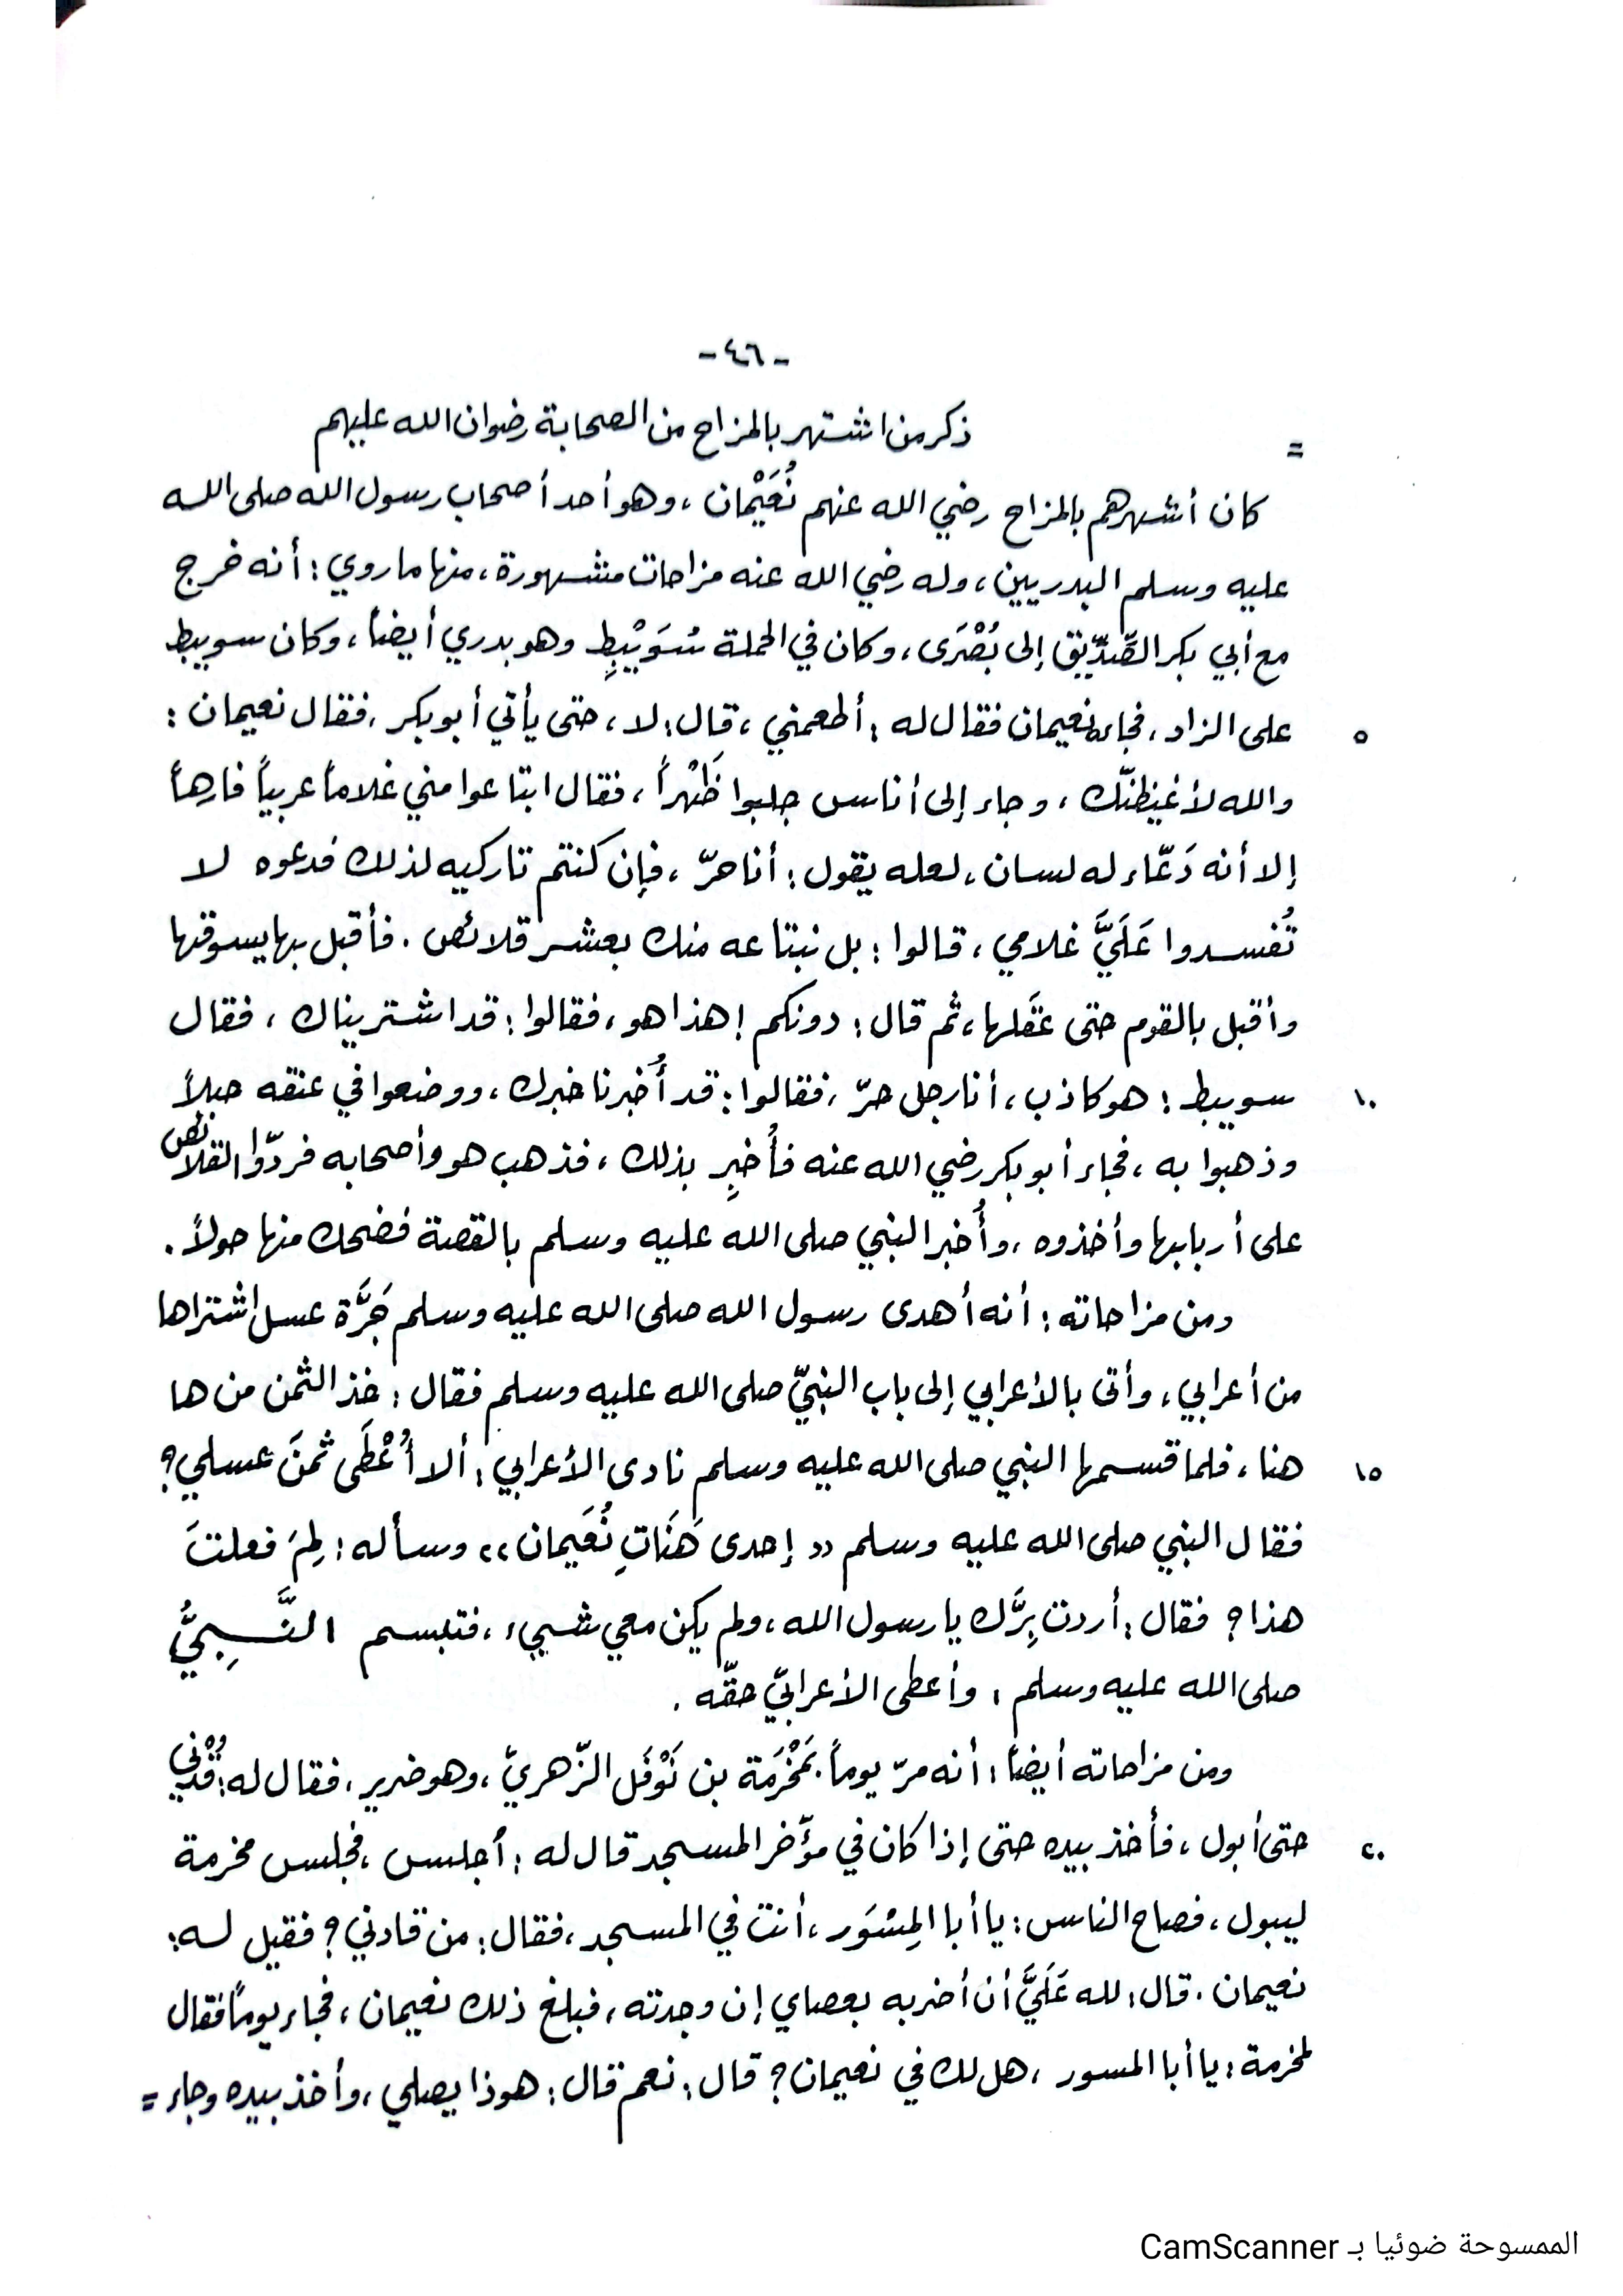 -٤٦-
= ذكر من اشتهر بالمزاح من الصحابة رضوان الله عليهم
كان أشهرهم بالمزاح رضي الله عنهم نُعَيْمان ، وهو أحد أصحاب رسول الله صلى الله
عليه وسلم البدريين ، وله رضي الله عنه مزاحات مشهورة ، منها ما روي : أنه خرج
مع أبي بكر الصّدّيق إلى بُصْرَى ، وكان في الحملة سُوَيْبِطٍ وهو بدري أيضاً ، وكان سويبط
٥ على الزاد ، فجاءه نعيمان فقال له : أطعمني ، قال : لا ، حتى يأتي أبو بكر ، فقال نعيمان :
والله لأغيظنّك ، وجاء إلى أناس جلبوا ظَهْراً ، فقال ابتاعوا مني غلاماً عربياً فارهاً
إلا أنه دَعّاء له لسان ، لعله يقول : أنا حرّ ، فإن كنتم تاركيه لذلك فدعوه لا
تُفسدوا عَلَيَّ غلامي ، قالوا : بل نبتاعه منك بعشر قلائص . فأقبل بها يسوقها
وأقبل بالقوم حتى عَقَلها ، ثم قال : دونكم ! هذا هو ، فقالوا : قد اشتريناك ، فقال
١٠ سويبط : هو كاذب ، أنا رجل حرّ ، فقالوا : قد أُخبرنا خبرك ، ووضعوا في عنقه حبلاً
وذهبوا به ، فجاء أبو بكر رضي الله عنه فأُخبِرِ بذلك ، فذهب هو وأصحابه فردّوا القلائص
على أربابها وأخذوه ، وأُخبر النبي صلى الله عليه وسلم بالقصة فضحك منها حولاً .
ومن مزاحاته : أنه أهدى رسول الله صلى الله عليه وسلم جَرَّة عسل اشتراها
من أعرابي ، وأتى بالأعرابي إلى باب النبيّ صلى الله عليه وسلم فقال : خذ الثمن من ها
١٥ هنا ، فلما قسمها النبي صلى الله عليه وسلم نادى الأعرابي : ألا أُعْطَى ثمنَ عسلي ؟
فقال النبي صلى الله عليه وسلم (( إحدى هَنَاتِ نُعَيمان )) وسأله : لِمَ فعلتَ
هذا ؟ فقال : أردت بِرَّك يا رسول الله ، ولم يكن معي شييء ، فتبسم النَّـبِيُّ
صلى الله عليه وسلم ، وأعطى الأعرابيّ حقّه .
ومن مزاحاته أيضاً : أنه مرّ يوماً بمَخْرَمَة بن نَوْفَل الزّهريّ ، وهو ضرير ، فقال له : قُدْني
٢٠ حتى أبول ، فأخذ بيده حتى إذا كان في مؤَخر المسجد قال له : أجلس ، فجلس مخرمة
ليبول ، فصاح الناس : يا أبا المِسْوَر ، أنت في المسجد ، فقال : من قادني ؟ فقيل له :
نعيمان . قال : لله عَلَيَّ أن أضربه بعصاي إن وجدته ، فبلغ ذلك نعيمان ، فجاء يوماً فقال
لمخرمة : يا أبا المسور ، هل لك في نعيمان ؟ قال : نعم قال : هو ذا يصلي ، وأخذ بيده وجاء =
الممسوحة ضوئيا بـ CamScanner